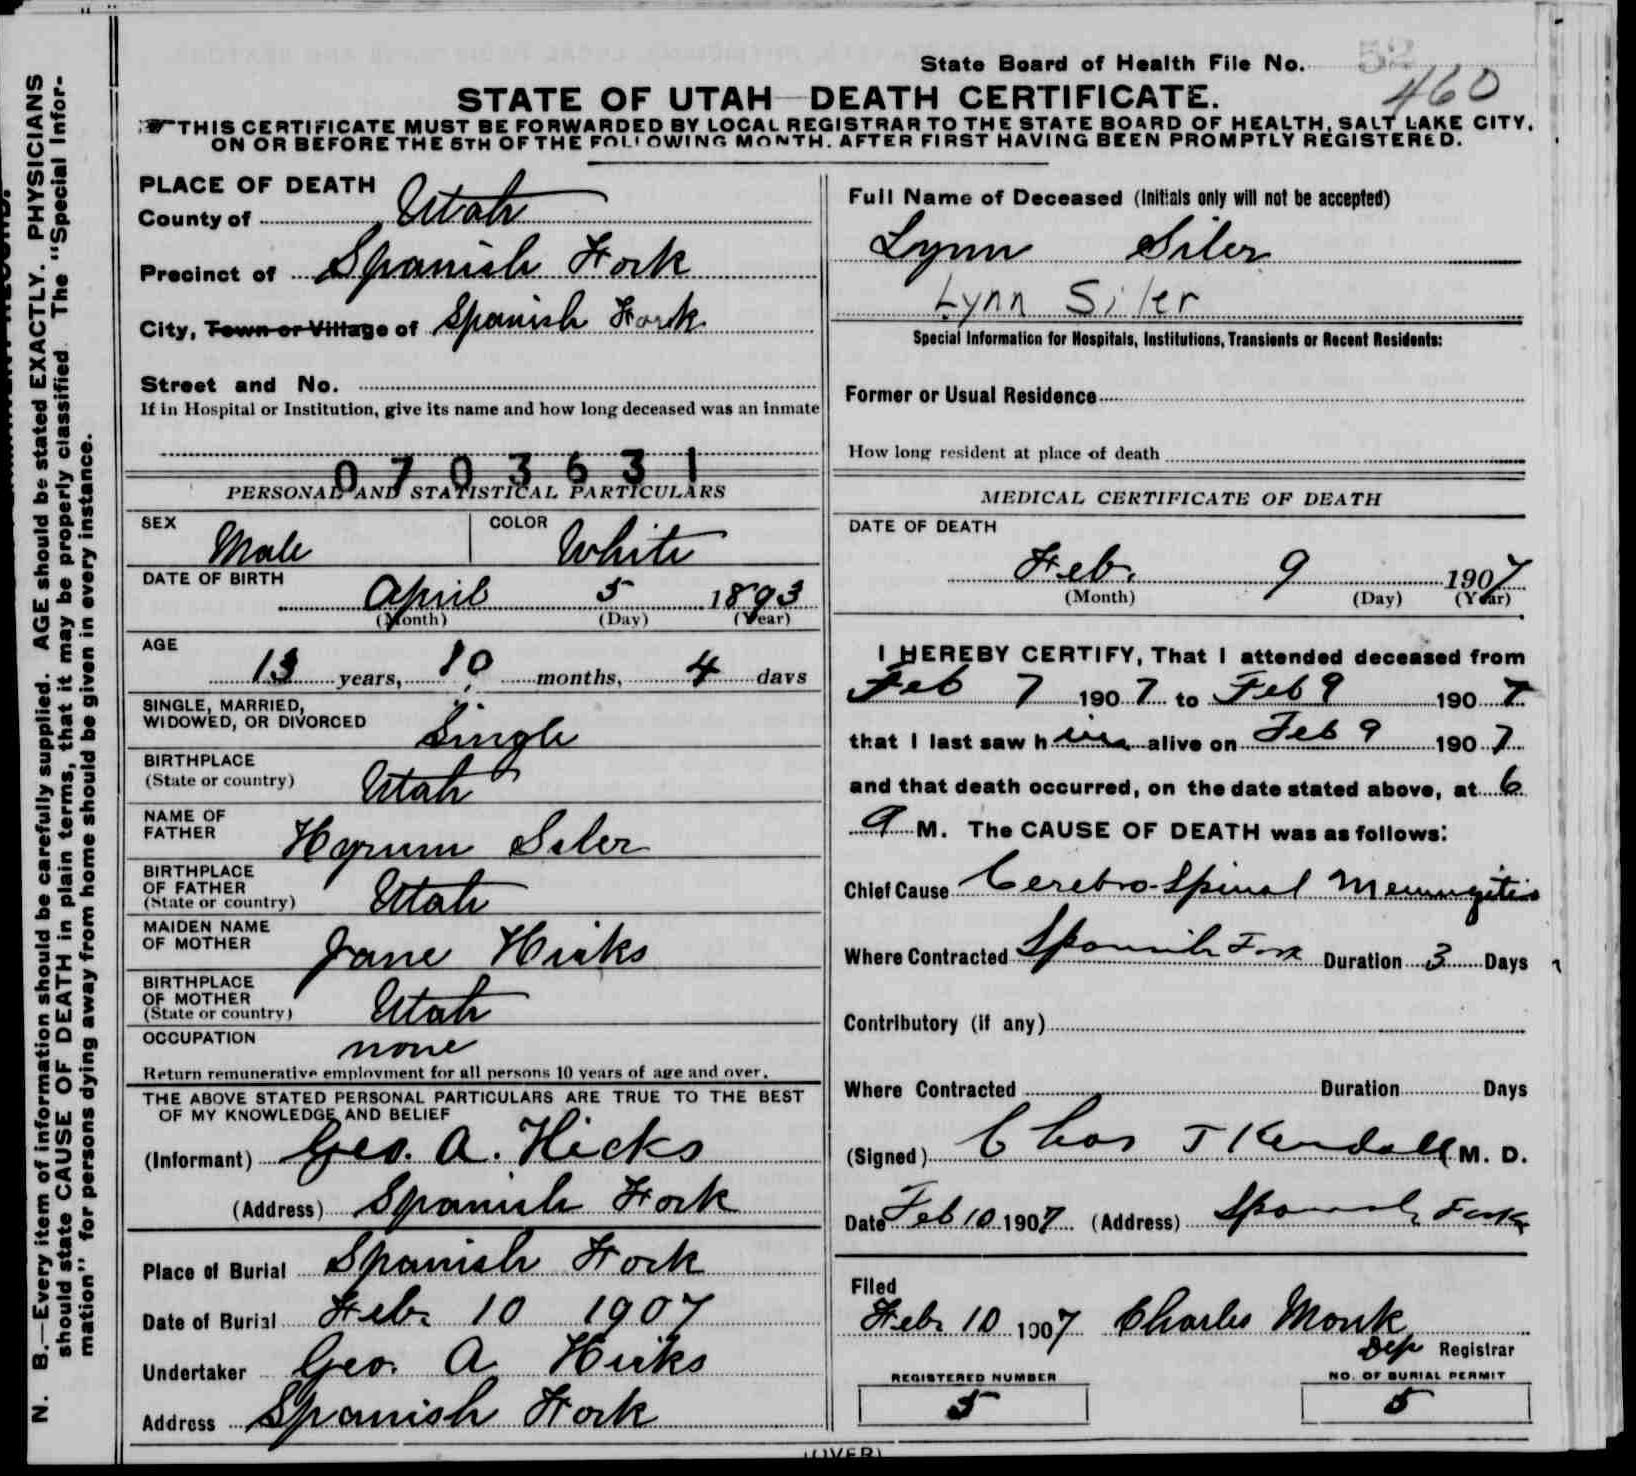 State Board of Health File No. 52
460
STATE OF UTAH—DEATH CERTIFICATE.
THIS CERTIFICATE MUST BE FORWARDED BY LOCAL REGISTRAR TO THE STATE BOARD OF HEALTH, SALT LAKE CITY,
ON OR BEFORE THE 5TH OF THE FOLLOWING MONTH, AFTER FIRST HAVING BEEN PROMPTLY REGISTERED.
N. B.—Every item of information should be carefully supplied. AGE should be stated EXACTLY. PHYSICIANS
should state CAUSE OF DEATH in plain terms, that it may be properly classified. The "Special Infor-
mation" for persons dying away from home should be given in every instance.
PLACE OF DEATH
County of Utah
Precinct of Spanish Fork
City, Town or Village of Spanish Fork
Street and No.
If in Hospital or Institution, give its name and how long deceased was an inmate
0703631
PERSONAL AND STATISTICAL PARTICULARS
SEX Male COLOR White
DATE OF BIRTH
April 5 1893
(Month) (Day) (Year)
AGE
13 years, 10 months, 4 days
SINGLE, MARRIED,
WIDOWED, OR DIVORCED Single
BIRTHPLACE
(State or country) Utah
NAME OF
FATHER Hyrum Siler
BIRTHPLACE
OF FATHER
(State or country) Utah
MAIDEN NAME
OF MOTHER Jane Hicks
BIRTHPLACE
OF MOTHER
(State or country) Utah
OCCUPATION none
Return remunerative employment for all persons 10 years of age and over.
THE ABOVE STATED PERSONAL PARTICULARS ARE TRUE TO THE BEST
OF MY KNOWLEDGE AND BELIEF
(Informant) Geo. A. Hicks
(Address) Spanish Fork
Place of Burial Spanish Fork
Date of Burial Feb. 10 1907
Undertaker Geo. A Hicks
Address Spanish Fork
Full Name of Deceased (Initials only will not be accepted)
Lynn Siler
Lynn Siler
Special Information for Hospitals, Institutions, Transients or Recent Residents:
Former or Usual Residence
How long resident at place of death
MEDICAL CERTIFICATE OF DEATH
DATE OF DEATH
Feb. 9 1907
(Month) (Day) (Year)
I HEREBY CERTIFY, That I attended deceased from
Feb 7 1907 to Feb 9 1907
that I last saw him alive on Feb 9 1907
and that death occurred, on the date stated above, at 6
a M. The CAUSE OF DEATH was as follows:
Chief Cause Cerebro-Spinal Meningitis
Where Contracted Spanish Fork Duration 3 Days
Contributory (if any)
Where Contracted Duration Days
(Signed) Chas T Kendall M. D.
Date Feb 10 1907 (Address) Spanish Fork
Filed
Feb. 10 1907 Charles Monk
Dep Registrar
REGISTERED NUMBER NO. OF BURIAL PERMIT
5 5
(OVER)